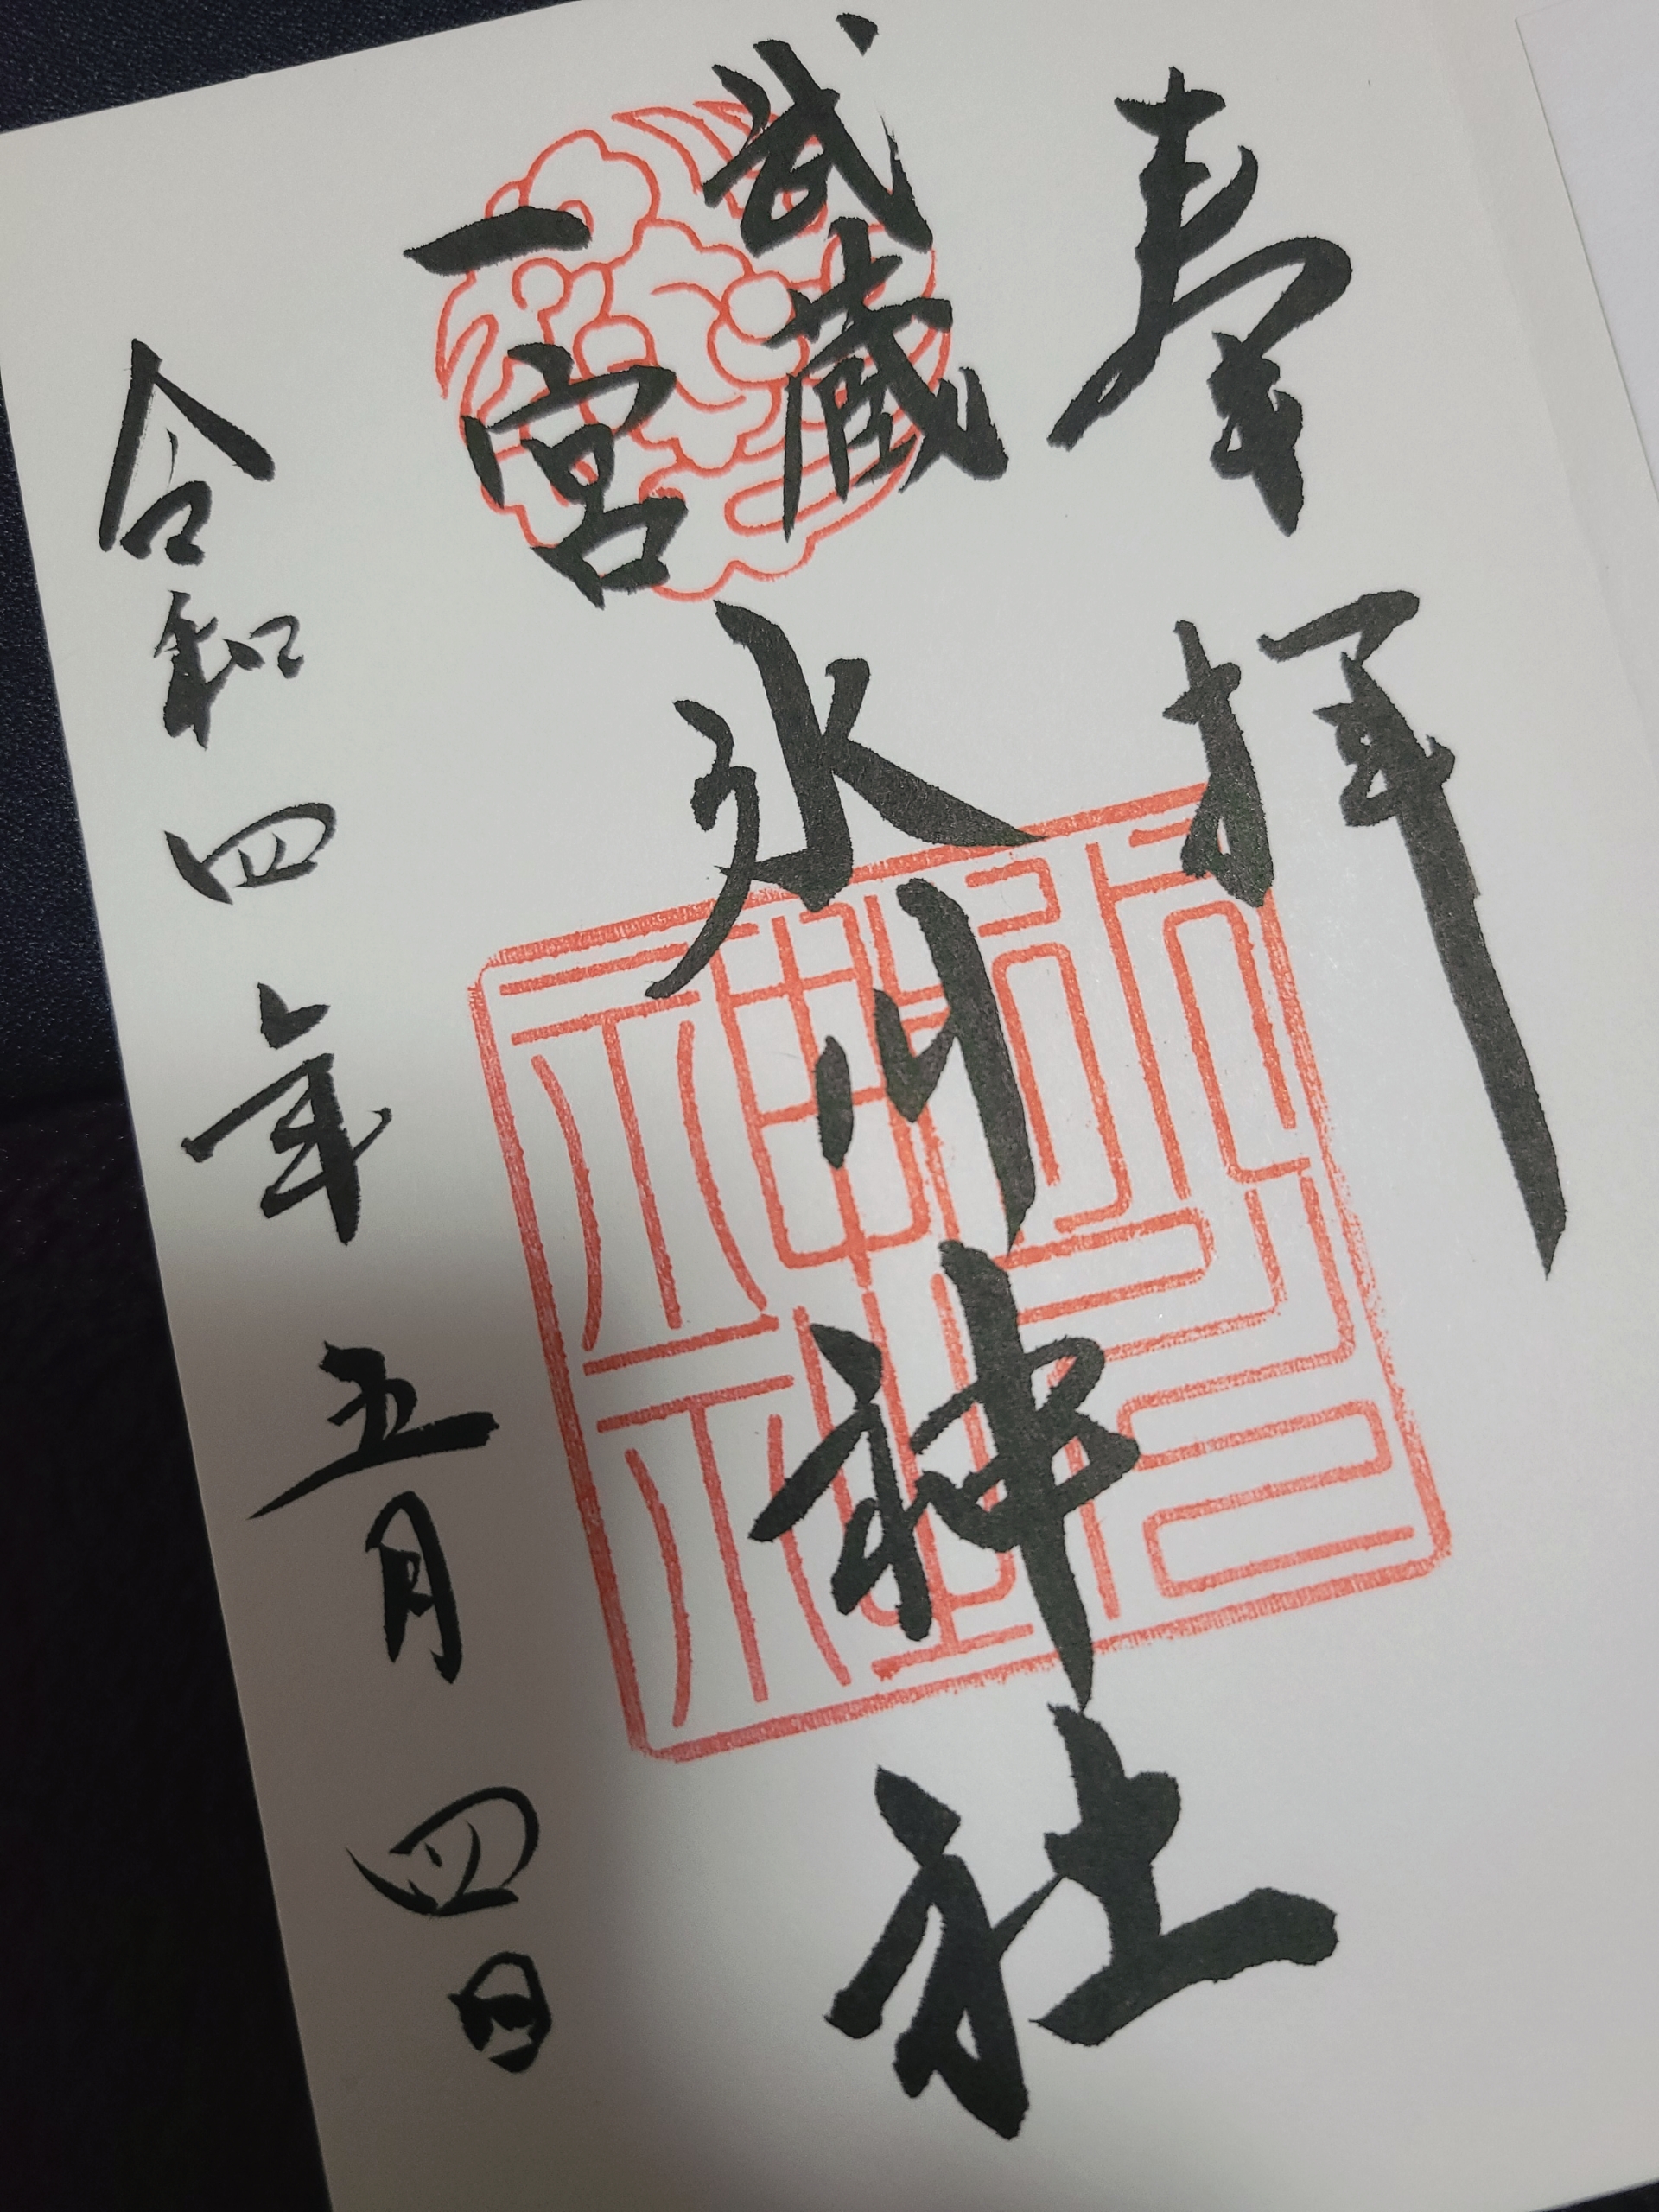 奉拝
武蔵
一宮
氷川神社
令和四年五月四日
氷川神社